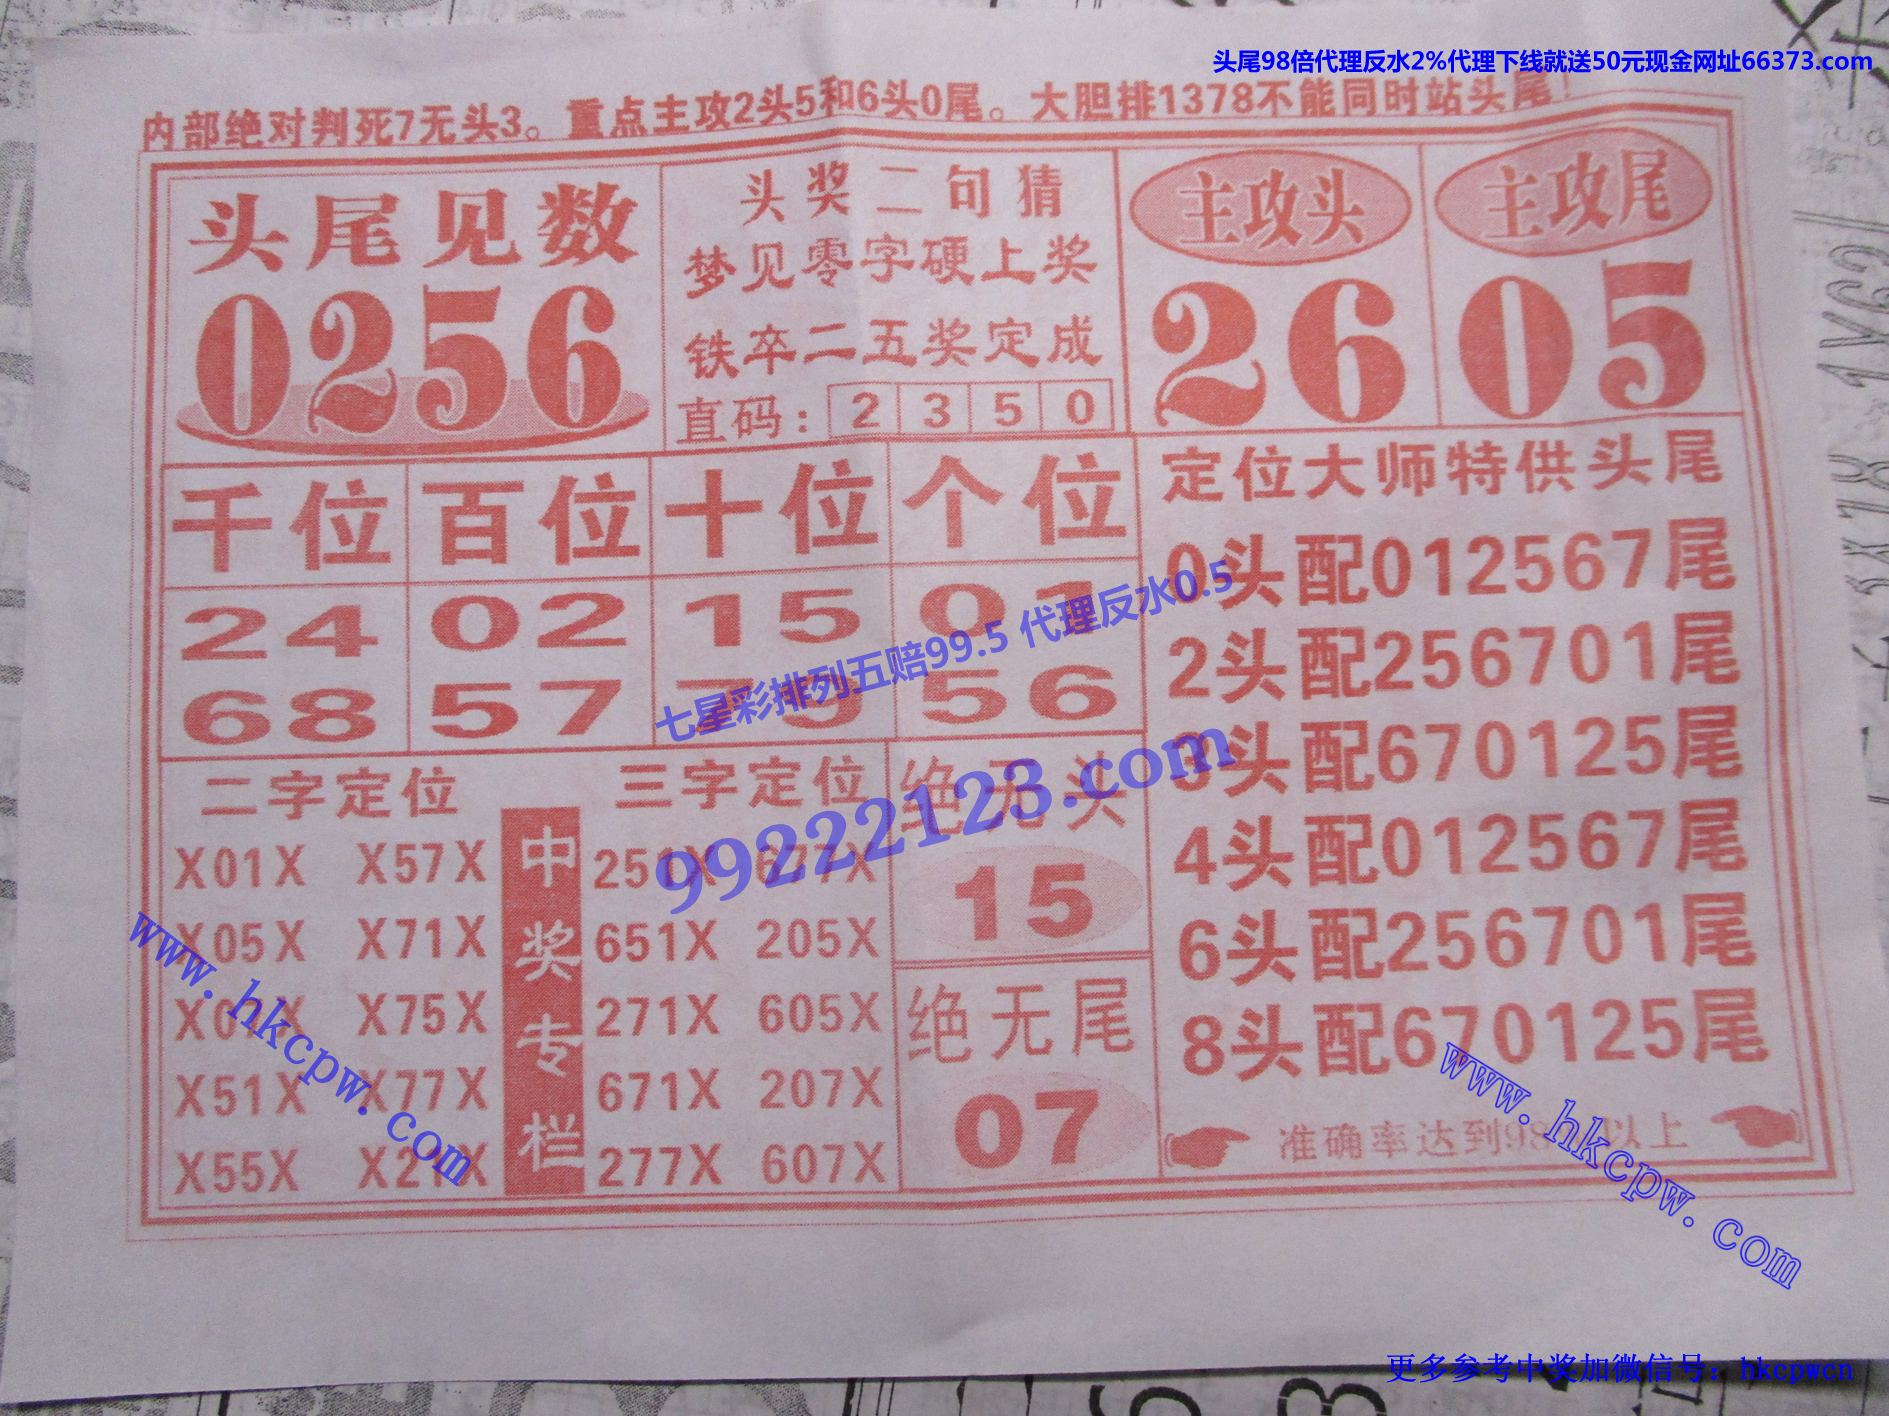 头尾98倍代理反水2%代理下线就送50元现金网址66373.com
内部绝对判死7无头3。重点主攻2头5和6头0尾。大胆排1378不能同时站头尾!
头尾见数
0256
头奖二句猜
梦见零字硬上奖
铁卒二五奖定成
直码：2350
主攻头
26
主攻尾
05
千位 百位 十位 个位
24 02 15 01
68 57 79 56
七星彩排列五赔99.5 代理反水0.5
99222123.com
定位大师特供头尾
0头配012567尾
2头配256701尾
3头配670125尾
4头配012567尾
6头配256701尾
8头配670125尾
准确率达到98 以上
二字定位
X01X X57X
X05X X71X
X07X X75X
X51X X77X
X55X X21X
中奖专栏
三字定位
251X 677X
651X 205X
271X 605X
671X 207X
277X 607X
绝无头
15
绝无尾
07
www.hkcpw.com
www.hkcpw.com
更多参考中奖加微信号：hkcpwcn